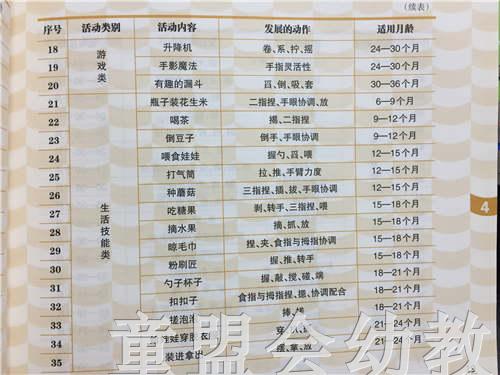 （续表）
序号 活动类别 活动内容 发展的动作 适用月龄
18 游戏类 升降机 卷、系、拧、摇 24—30个月
19 手影魔法 手指灵活性 24—30个月
20 有趣的漏斗 舀、倒、吸、套 30—36个月
21 生活技能类 瓶子装花生米 二指捏、手眼协调、放 6—9个月
22 喝茶 揭、二指捏 9—12个月
23 倒豆子 倒手、手眼协调 9—12个月
24 喂食娃娃 握勺、舀、喂 12—15个月
25 打气筒 拉、推、手臂力度 12—15个月
26 种蘑菇 三指捏、插、拔、手眼协调 12—15个月
27 吃糖果 剥、转手、三指捏、喂 15—18个月
28 摘水果 摘、抓、放 15—18个月
29 晾毛巾 捏、夹、食指与拇指协调 15—18个月
30 粉刷匠 握、推、转手 15—18个月
31 勺子杯子 握、敲、搅、碰、端 18—21个月
32 扣扣子 食指与拇指捏、摁、协调配合 18—21个月
33 搓泡泡 捧、搓 18—21个月
34 穿 21—24个月
35 装进拿出 摆、拿、放 21—24个月
4
童盟会幼教